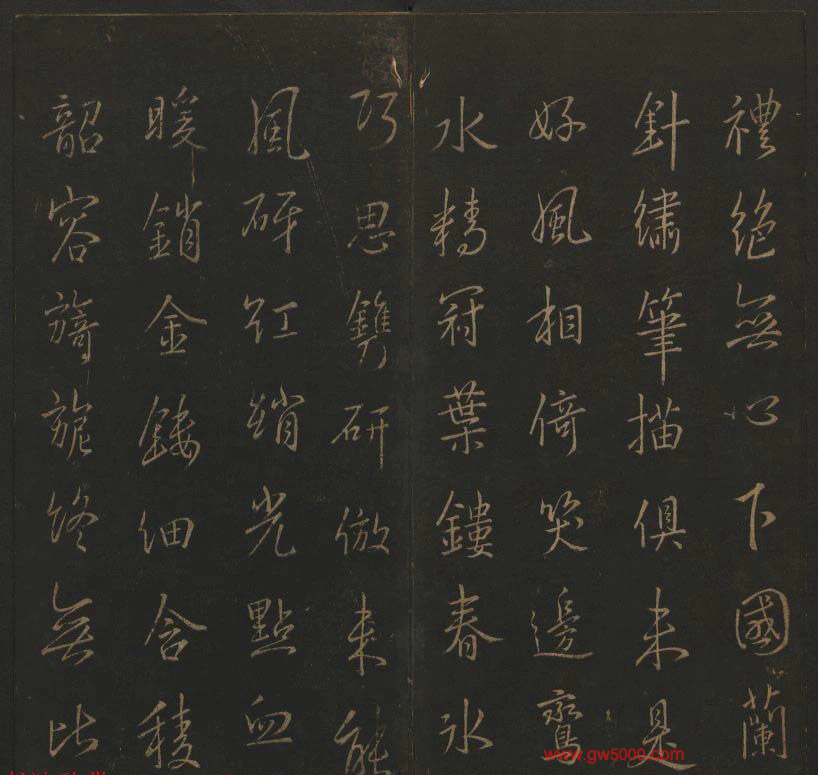 禮絕無心下國蘭
針繡筆描俱未是
好風相倚笑邊鸞
水精冠葉鏤春冰
巧思鐫研倣未能
風砑紅綃光點血
暖鎖金縷細含稜
韶容旖旎終無比
www.gw5000.com